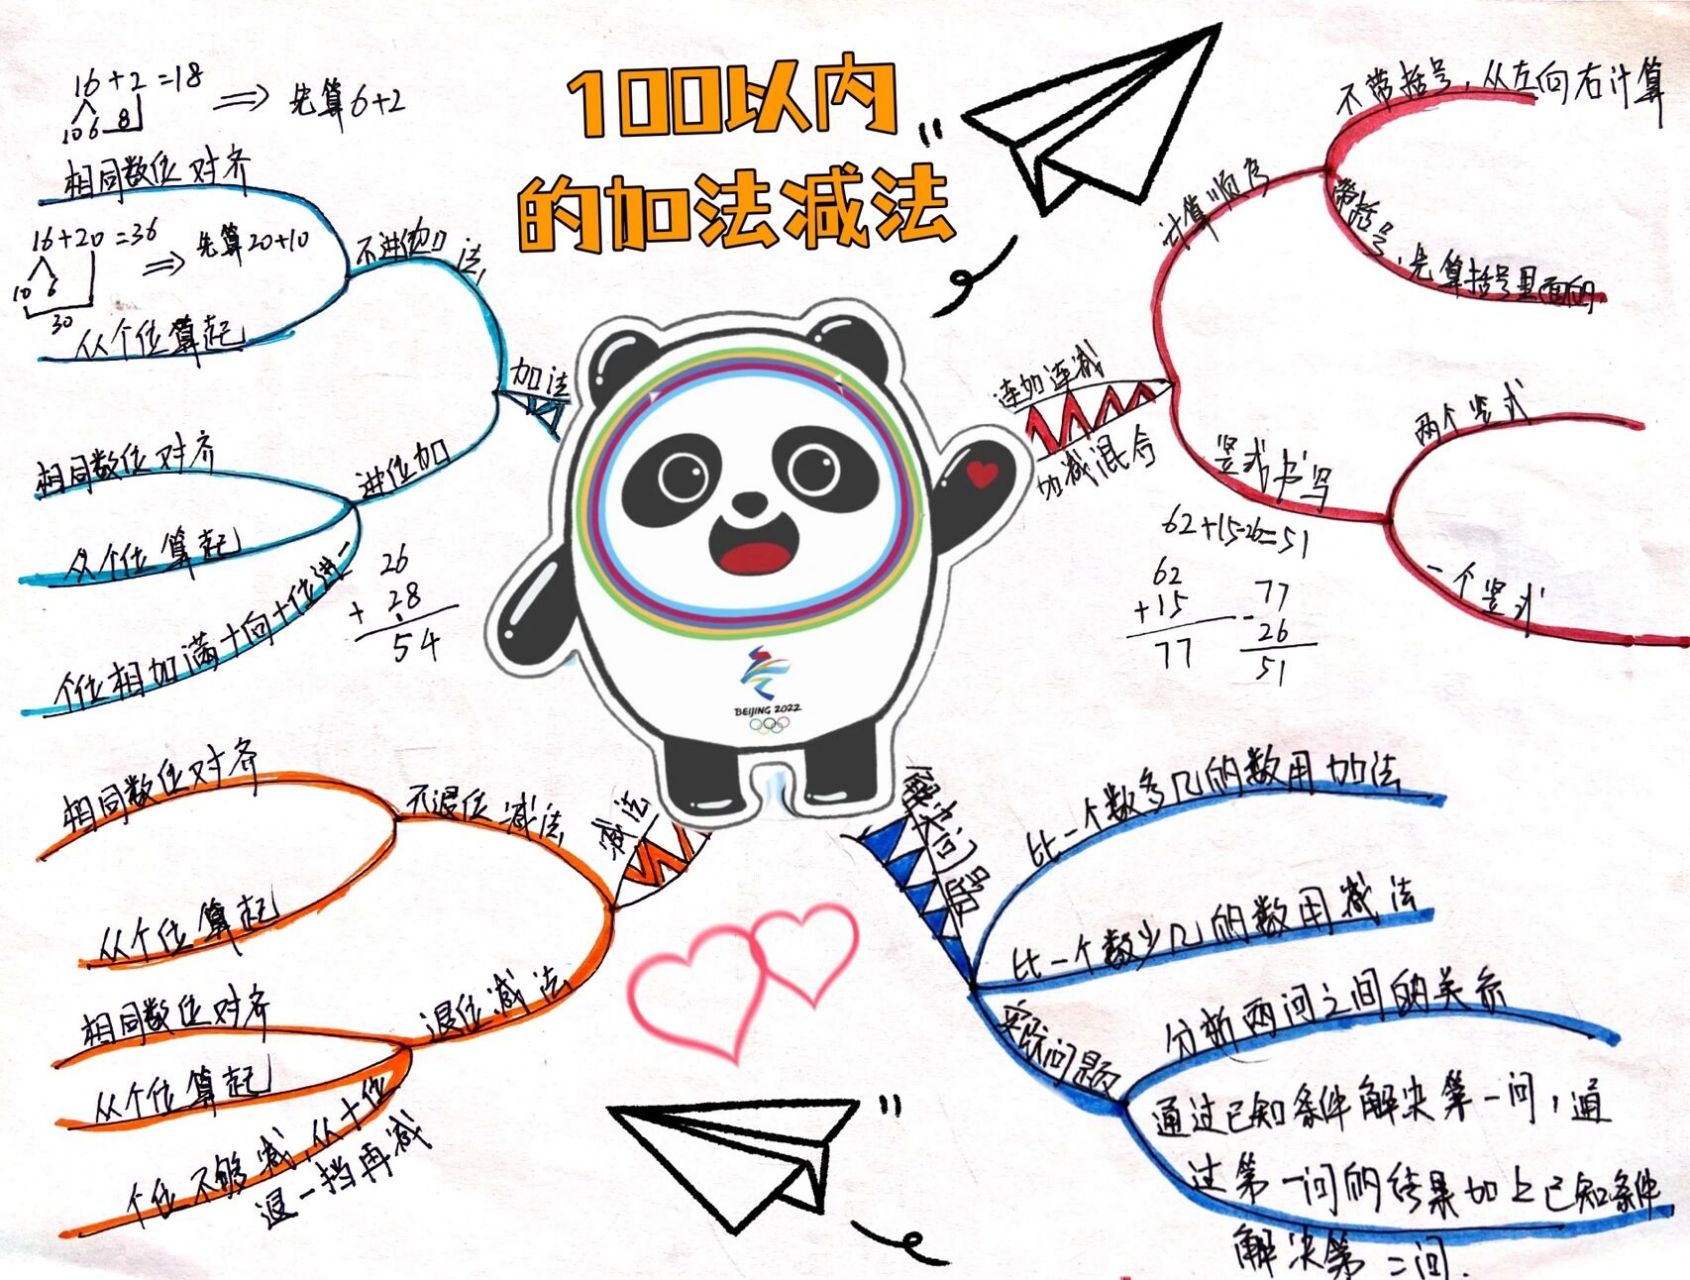 100以内
的加法减法
16+2=18
10 6 8
⇒ 先算6+2
相同数位对齐
16+20=36
10 6
30
⇒ 先算20+10
不进位加法
从个位算起
加法
相同数位对齐
进位加
从个位算起
个位相加满十向十位进一
26
+ 28
54
连加连减
加减混合
计算顺序
不带括号，从左向右计算
带括号，先算括号里面的
竖式书写
两个竖式
一个竖式
62+15-26=51
62
+15
77
77
- 26
51
BEIJING 2022
减法
不退位减法
相同数位对齐
从个位算起
退位减法
相同数位对齐
从个位算起
个位不够减，从十位
退一当再减
解决问题
比一个数多几的数用加法
比一个数少几的数用减法
实际问题
分析两问之间的关系
通过已知条件解决第一问，通
过第一问的结果加上已知条件，
解决第二问.